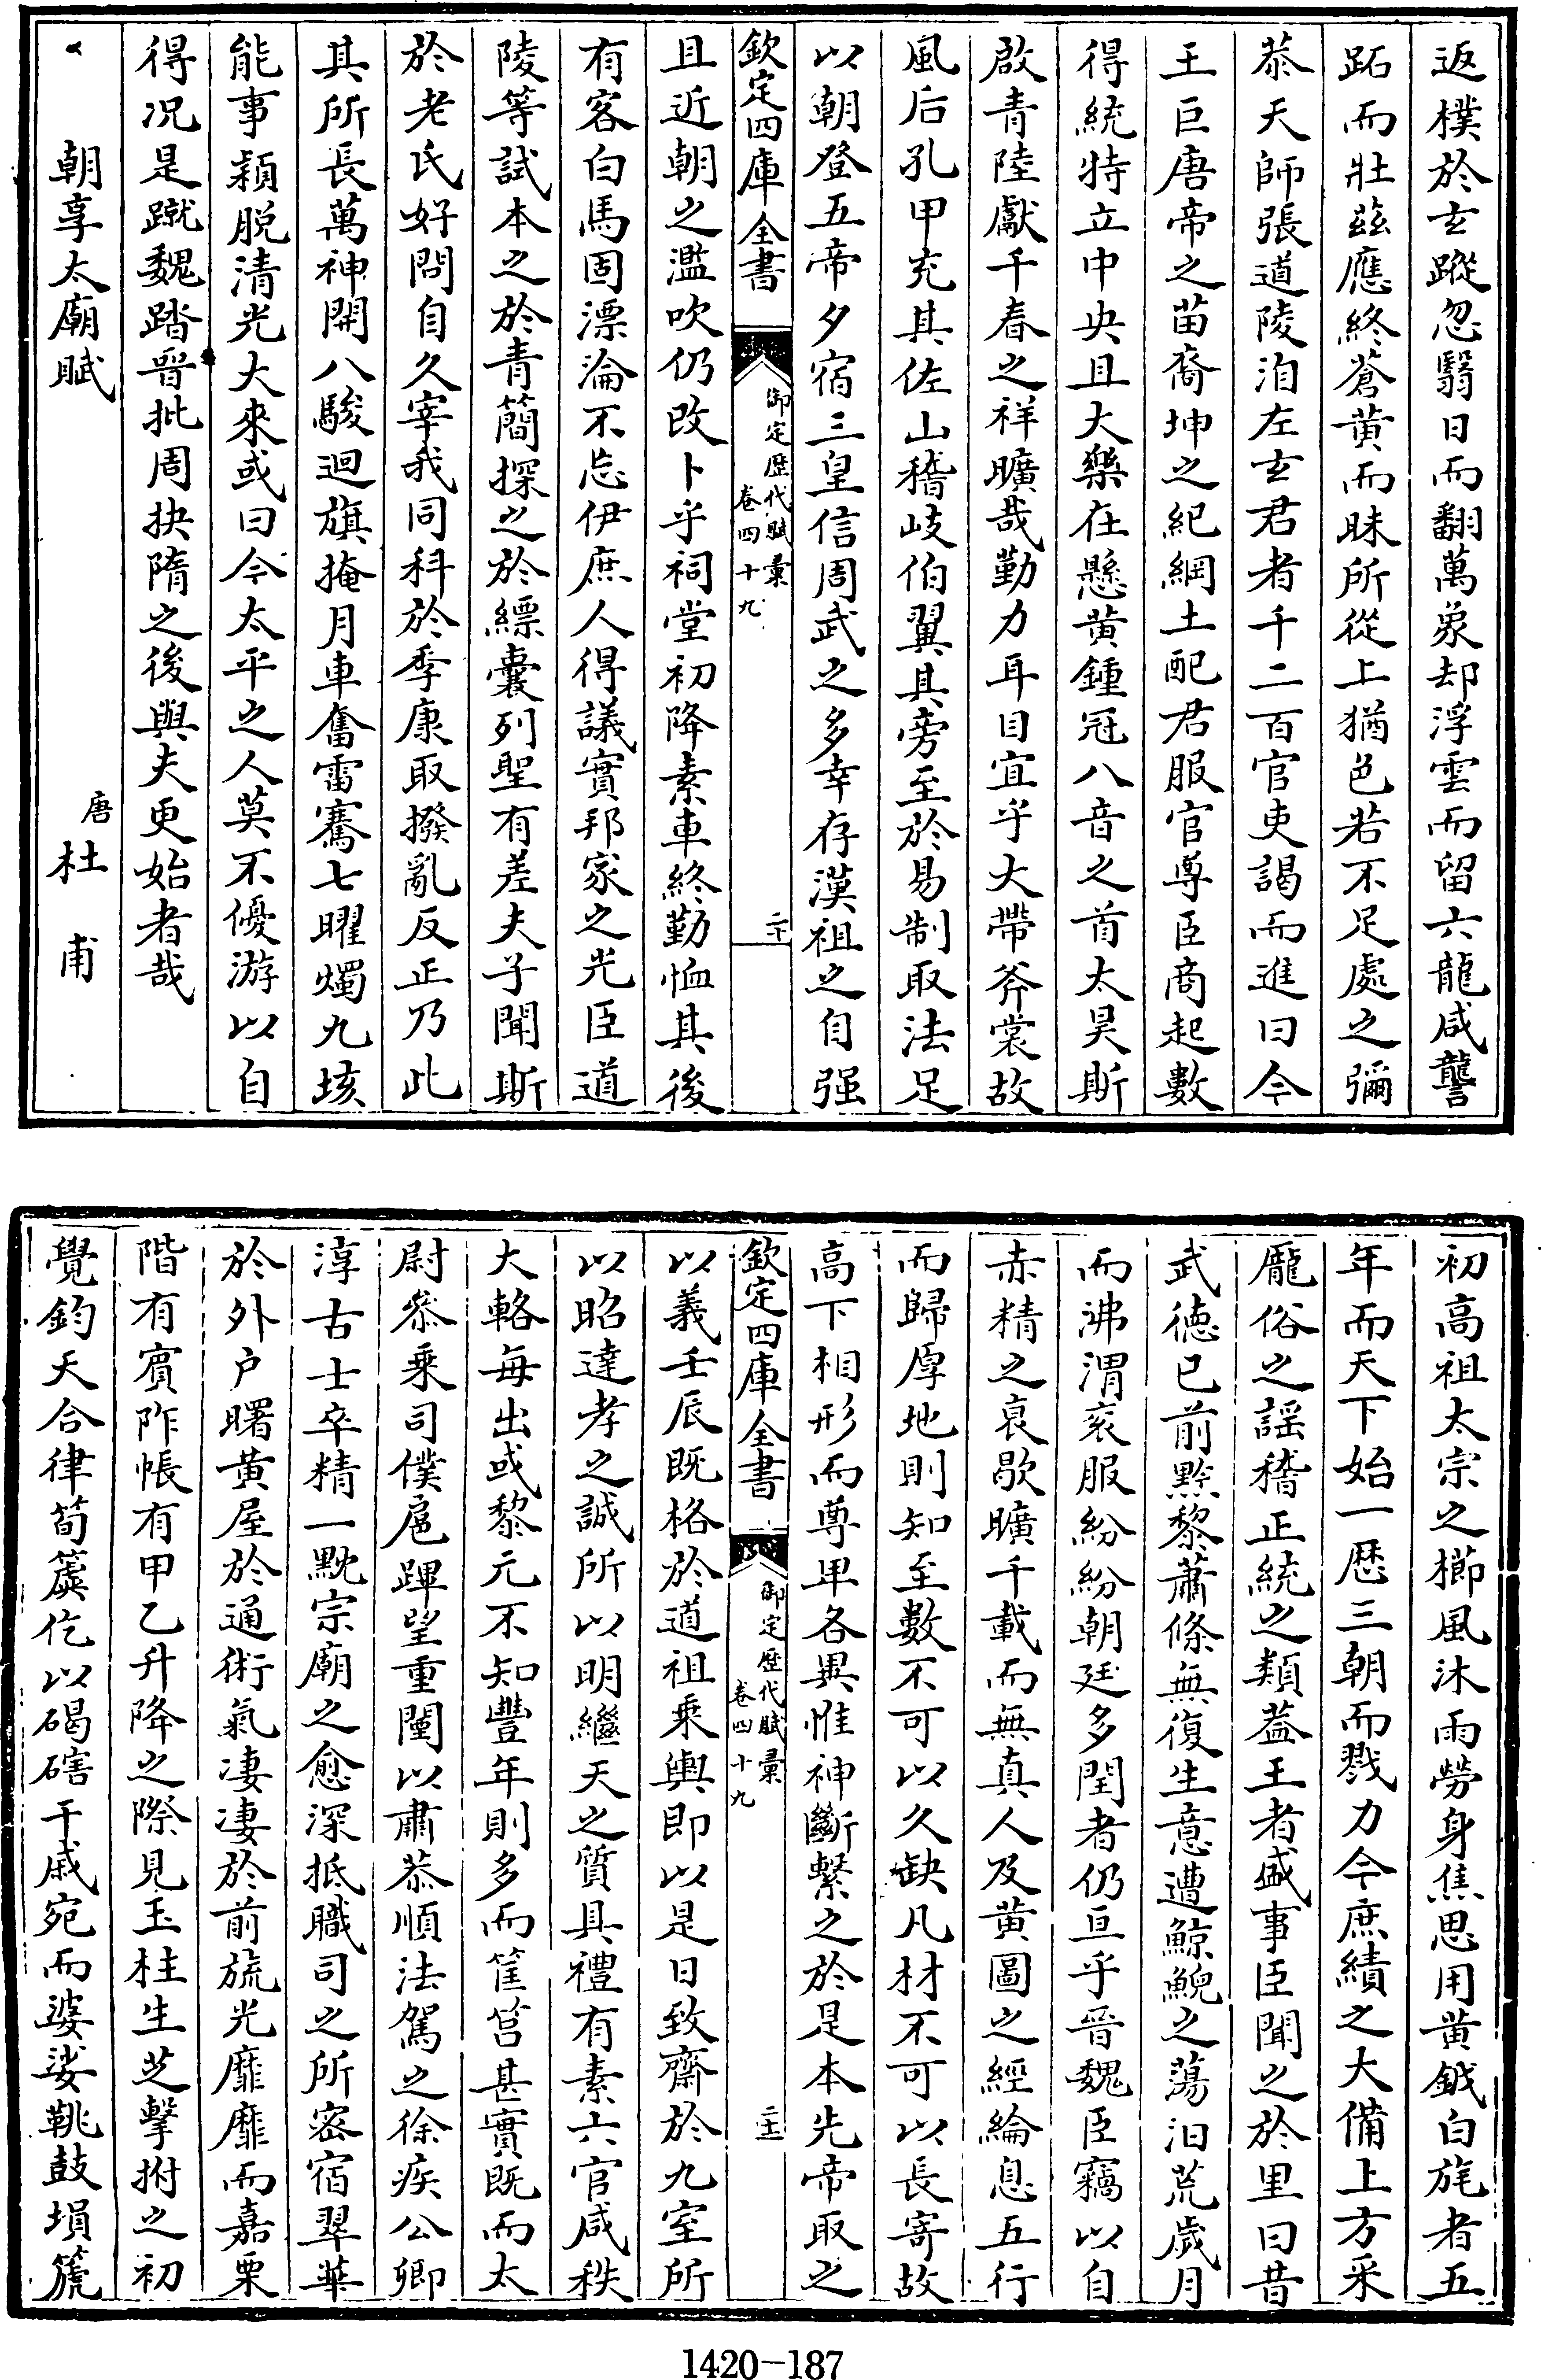 返樸於玄蹤忽翳日而翻萬象却浮雲而留六龍咸讋
跖而壯茲應終蒼黄而昧所從上猶色若不足處之彌
恭天師張道陵洎左玄君者千二百官吏謁而進曰今
王巨唐帝之苗裔坤之紀綱土配君服官尊臣商起數
得統特立中央且大樂在懸黄鍾冠八音之首太昊斯
啟青陸獻千春之祥曠哉勤力耳目宜乎大帶斧裳故
風后孔甲充其佐山稽岐伯翼其旁至於易制取法足
以朝登五帝夕宿三皇信周武之多幸存漢祖之自强
欽定四庫全書
御定歷代賦彙
卷四十九
二十
且近朝之濫吹仍改卜乎祠堂初降素車終勤恤其後
有客白馬固漂淪不忘伊庶人得議實邦家之光臣道
陵等試本之於青簡探之於縹囊列聖有差夫子聞斯
於老氏好問自久宰我同科於季康取撥亂反正乃此
其所長萬神開八駿迴旗掩月車奮雷騫七曜燭九垓
能事潁脱清光大來或曰今太平之人莫不優游以自
得况是蹴魏踏晉批周抉隋之後與夫更始者哉
朝享太廟賦 唐杜甫
初高祖太宗之櫛風沐雨勞身焦思用黄鉞白旄者五
年而天下始一歷三朝而戮力今庶績之大備上方采
厖俗之謡稽正統之類葢王者盛事臣聞之於里曰昔
武徳已前黔黎蕭條無復生意遭鯨鯢之蕩汨荒歲月
而沸渭衮服紛紛朝廷多閏者仍亘乎晉魏臣竊以自
赤精之衰歇曠千載而無真人及黄圖之經綸息五行
而歸厚地則知至數不可以久缺凡材不可以長寄故
高下相形而尊卑各異惟神斷繫之於是本先帝取之
欽定四庫全書
御定歷代賦彙
卷四十九
二十一
以義壬辰既格於道祖乘輿即以是日致齋於九室所
以昭達孝之誠所以明繼天之質具禮有素六官咸秩
大輅每出或黎元不知豐年則多而筐筥甚實既而太
尉叅乘司僕扈蹕望重闉以肅恭順法駕之徐疾公卿
淳古士卒精一黕宗廟之愈深抵職司之所密宿翠華
於外户曙黄屋於通術氣凄凄於前旒光靡靡而嘉栗
階有賔阼帳有甲乙升降之際見玉柱生芝擊拊之初
覺鈞天合律筍簴仡以碣磍干戚宛而婆娑鞉鼓塤篪
1420-187